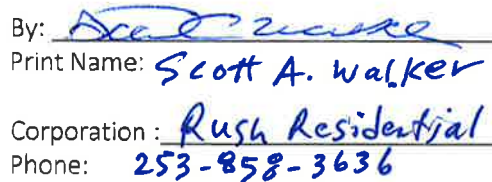 By:
Print Name: Scott A. Walker
Corporation : Rush Residential
Phone: 253-858-3636